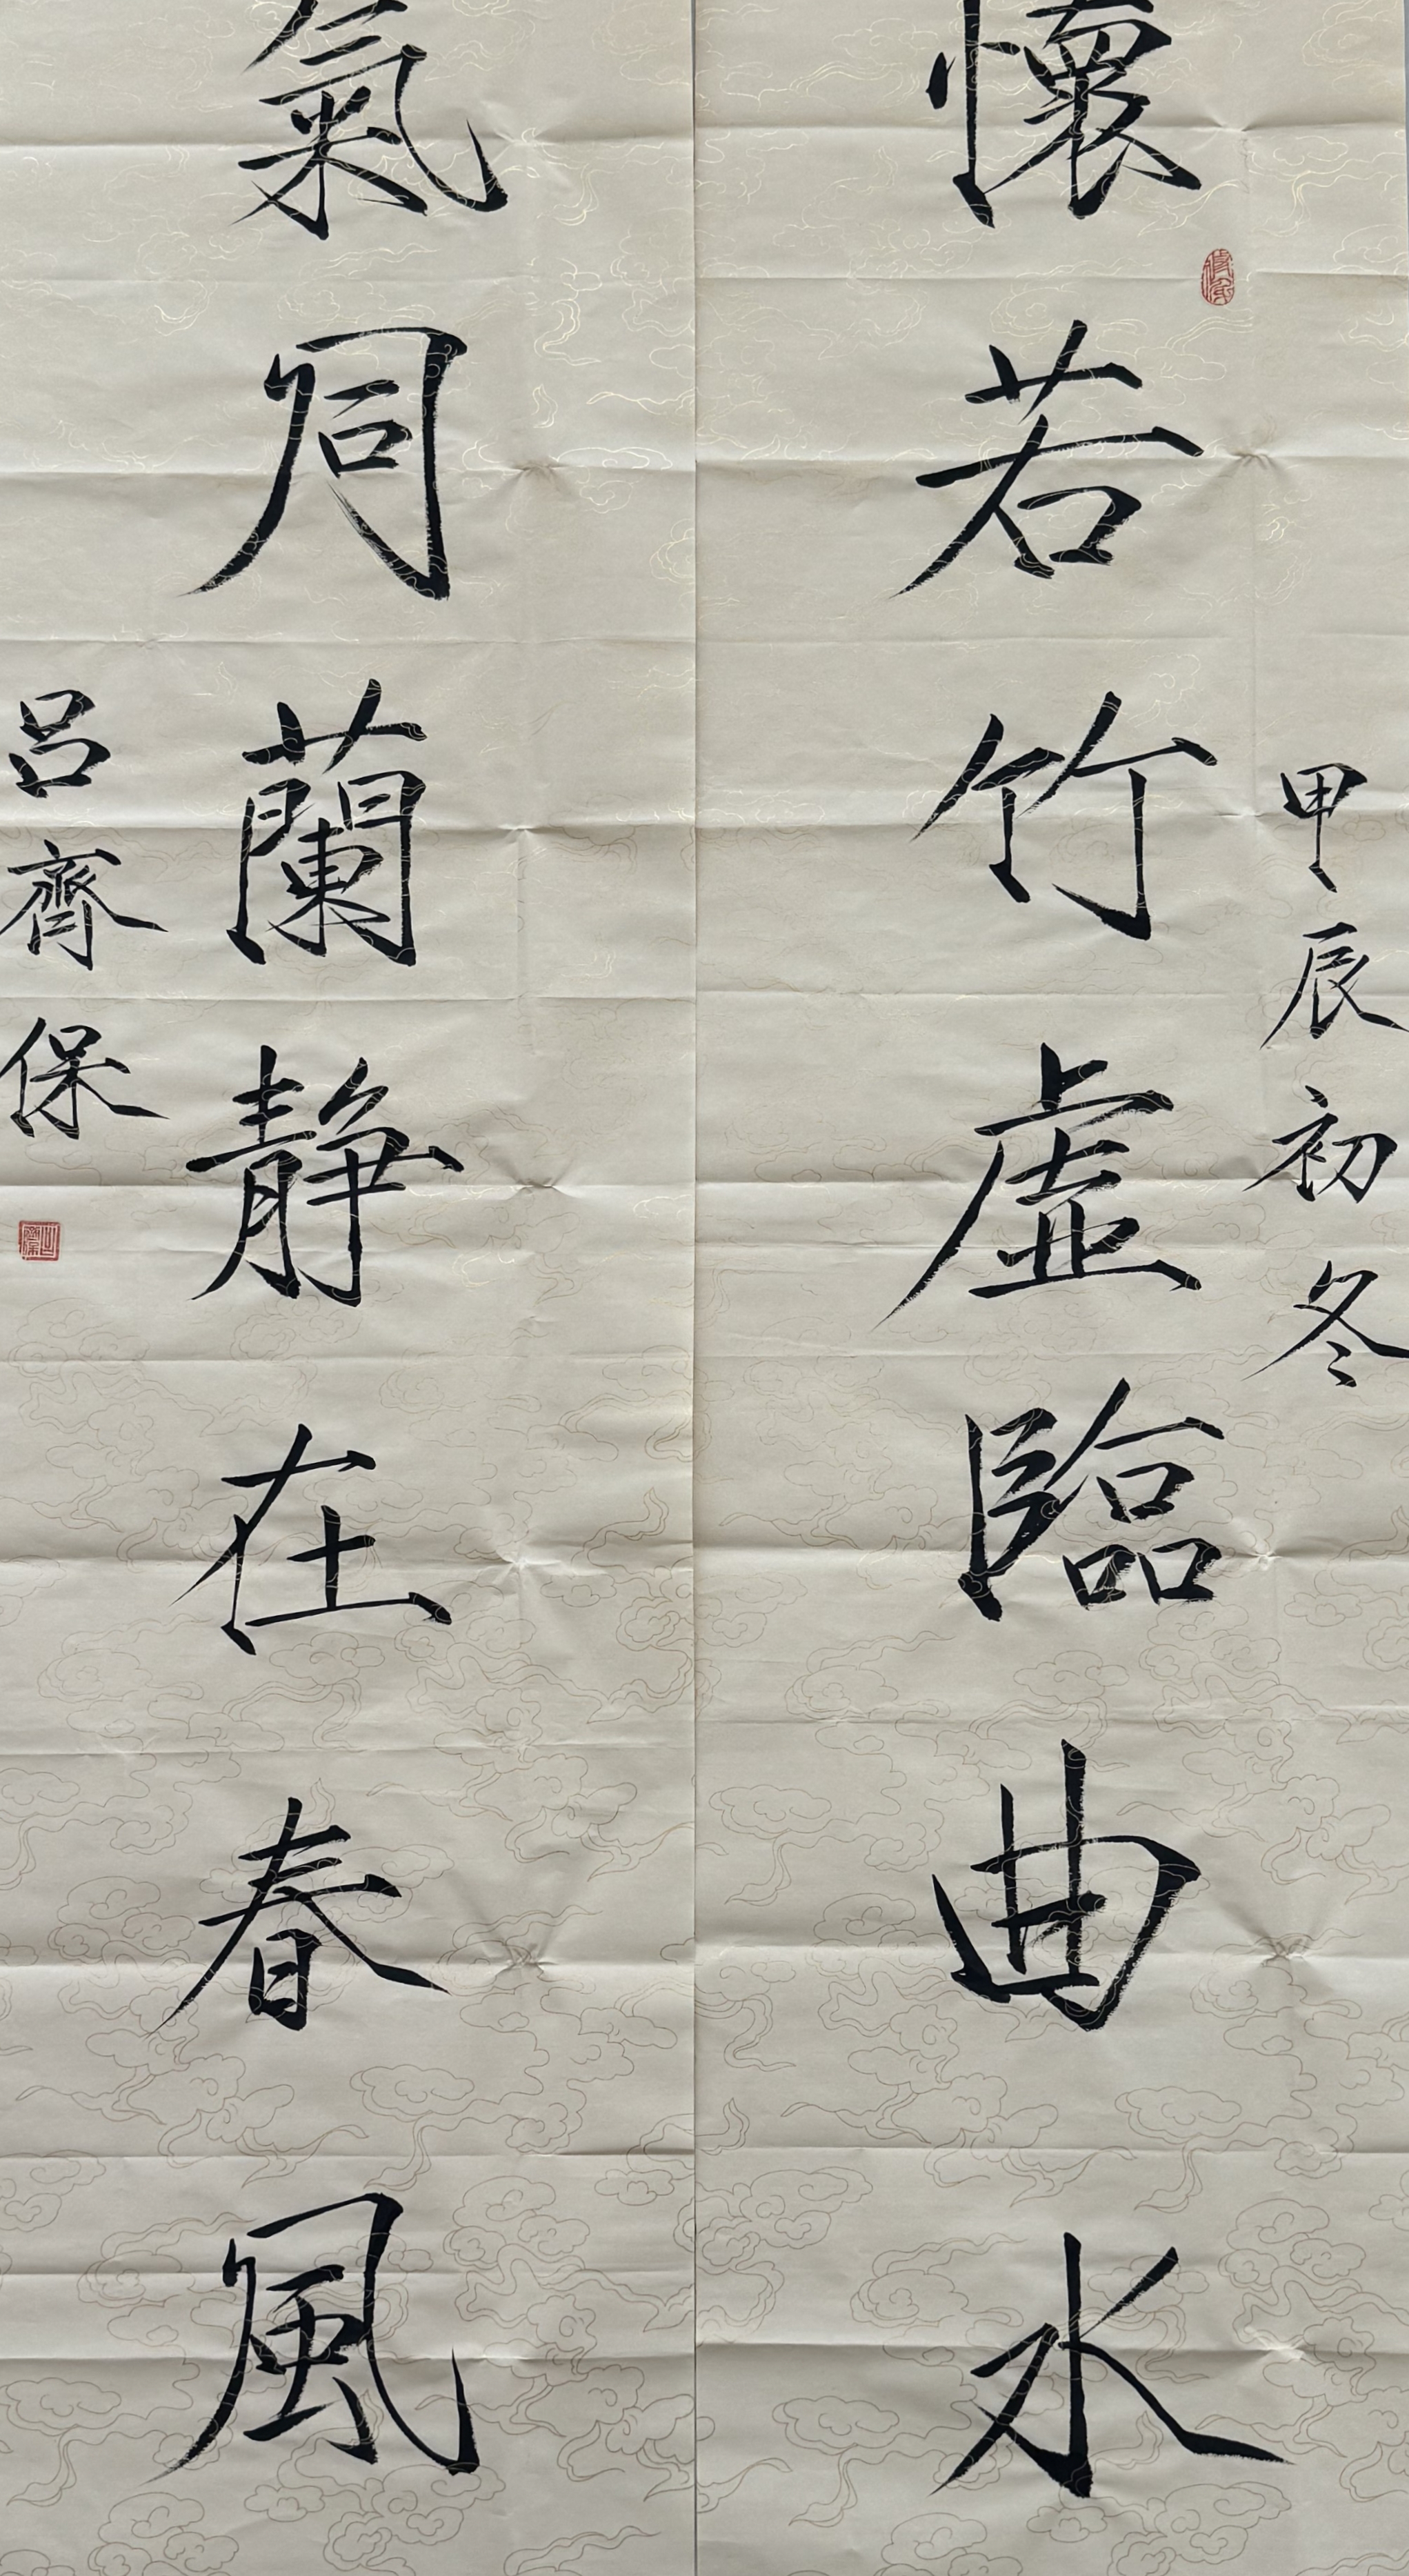 懷若竹虛臨曲水
甲辰初冬
氣同蘭靜在春風
呂齊保